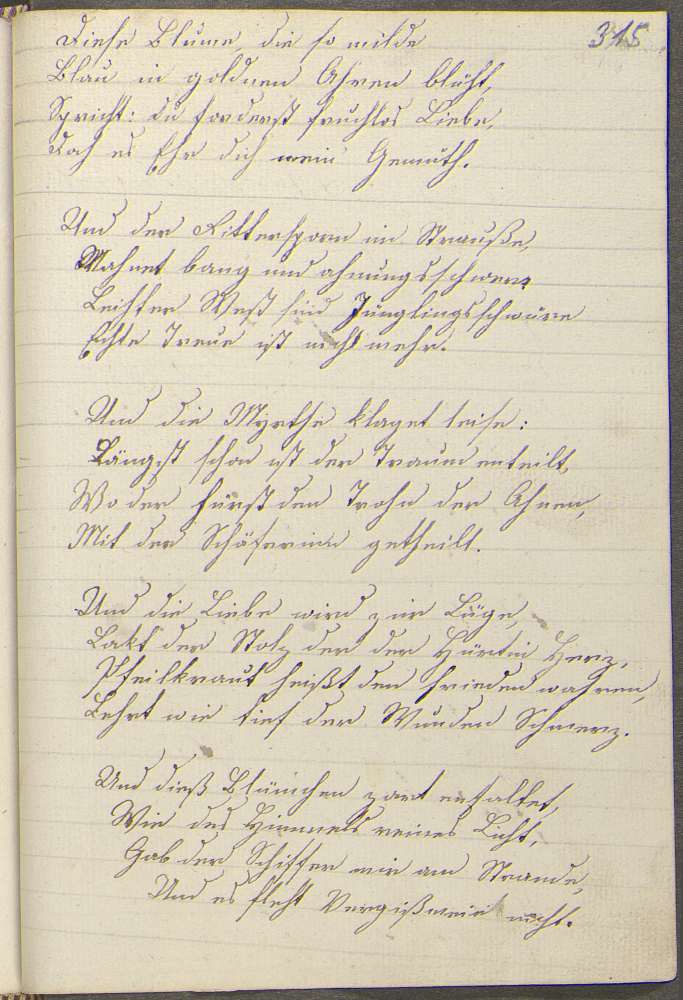 315
Diese Blume, die so milde
Blau in goldnen Ähren blüht,
Spricht: du forderst fruchlos Liebe,
Doch es Ehr dich mein Gemüth.
Und der Rittersporn im Strauße,
Mahnet bang und ahnungsschwer,
Leichter West sind Jünglingsschwüre
Echte Treue ist nicht mehr.
Und die Myrthe klaget leise:
Längst schon ist der Traum enteilt,
Wo der Fürst den Trohn der Ahnen,
Mit der Schäferinn getheilt.
Und die Liebe wird zur Lüge,
Lakt der Stolz der der Hürtin Herz,
Pfeilkraut heißt den Frieden wahren,
Lehrt wie tief der Wunden Schmerz.
Und dieß Blümchen zart entfaltet,
Wie des Himmels reines Licht,
Gab der Schiffer mir am Strande,
Und es fleht Vergißmein nicht.